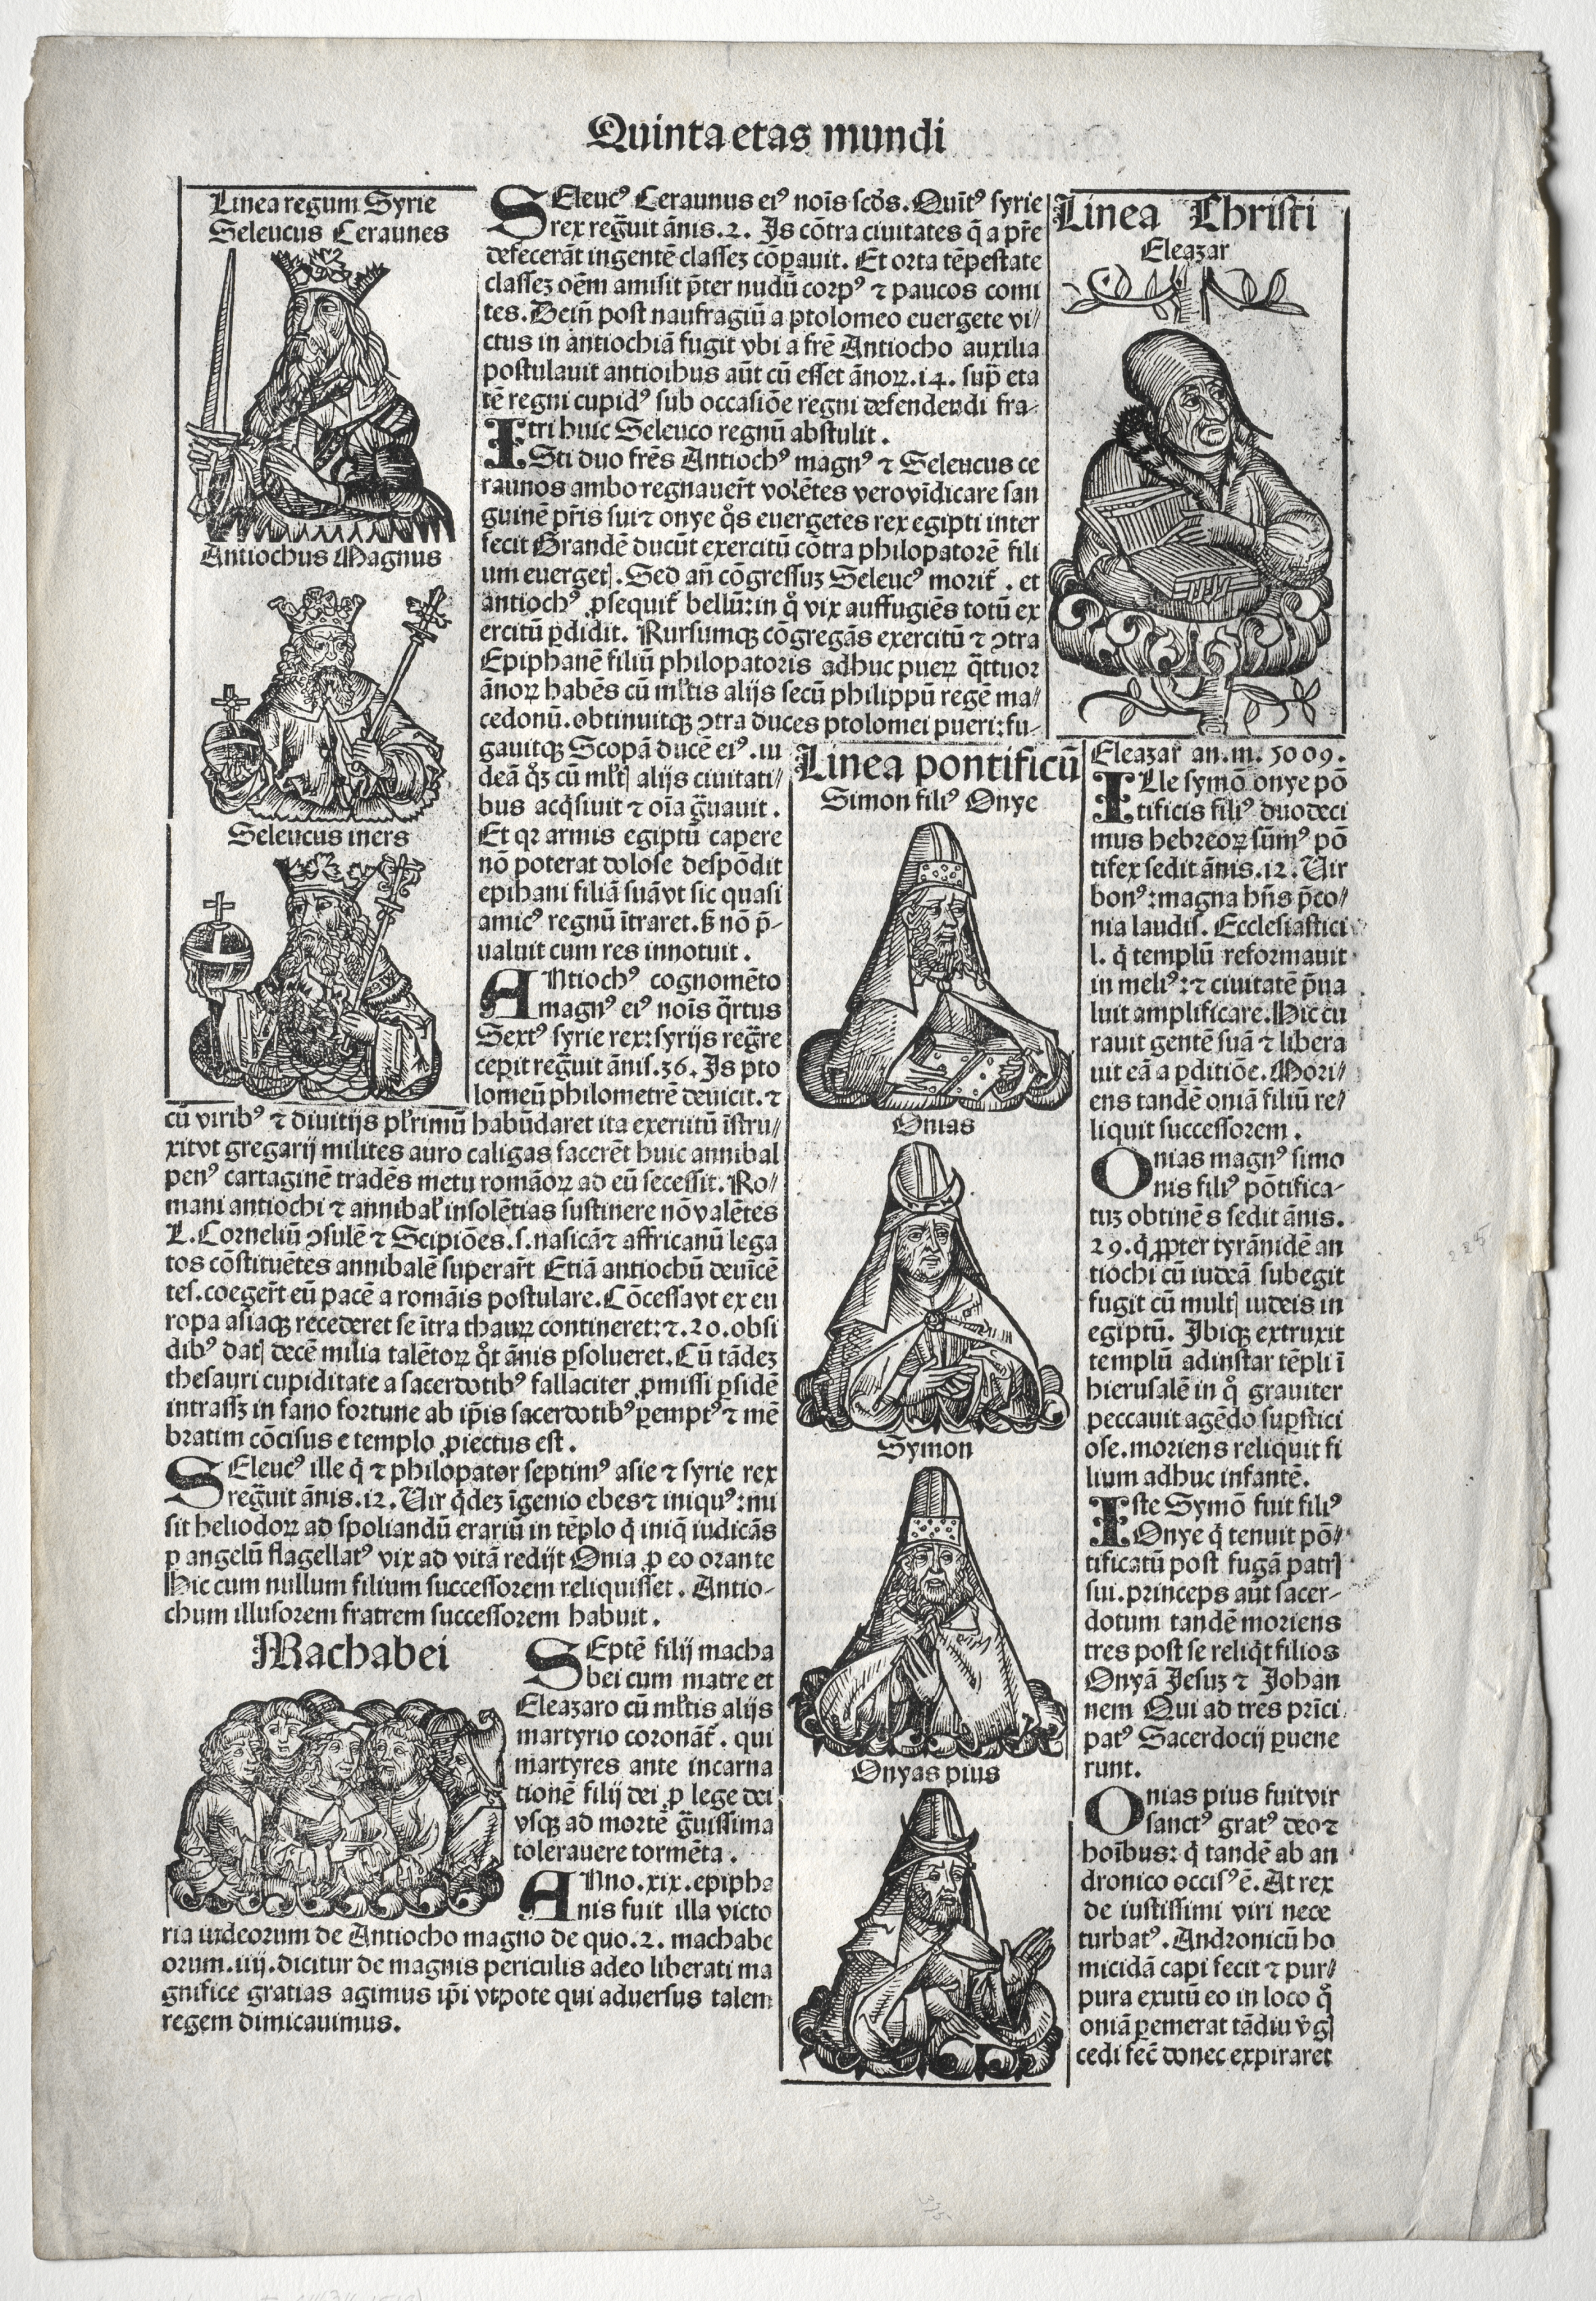 Quinta etas mundi
Linea regum Syrie
Seleucus Ceraunes
Antiochus Magnus
Seleucus iners
SEleucꝰ Ceraunus eiꝰ noīs scd̄s. Quītꝰ syrie
rex reḡuit ānis.2. Is cōtra ciuitates q̄ a pr̄e
defecerāt ingentē classeʒ cōꝑauit. Et orta tēpestate
classeʒ oēm amisit p̄ter nudū corpꝰ ⁊ paucos comi
tes. Dein̄ post naufragiū a ptolomeo euergete vi/
ctus in antiochiā fugit vbi a fr̄e Antiocho auxilia
postulauit antioibus aūt cū esset ānoꝝ.14. sup̄ eta
tē regni cupidꝰ sub occasiōe regni defendendi fra-
tri huic Seleuco regnū abstulit.
ISti duo fr̄es Antiochꝰ magnꝰ ⁊ Seleucus ce
raunos ambo regnauer̄t volētes vero vīdicare san
guinē pr̄is sui ⁊ onye q̊s euergetes rex egipti inter
fecit Grandē ducūt exercitū cōtra philopatorē fili
um euergetꝭ. Sed an̄ cōgressuʒ Seleucꝰ morit̄. et
antiochꝰ ꝓsequit̄ bellū: in q̊ vix auffugiēs totū ex
ercitū ꝑdidit. Rursumqꝫ cōgregās exercitū ⁊ ↄtra
Epiphanē filiū philopatoris adhuc pueꝝ q̄ttuor
ānoꝝ habēs cū ml̄tis alijs secū philippū regē ma/
cedonū. obtinuitqꝫ ↄtra duces ptolomei pueri: fu-
gauitqꝫ Scopā ducē eiꝰ. iu
deā q̊ʒ cū ml̄tꝭ alijs ciuitati/
bus acq̄siuit ⁊ oīa g̈uauit.
Et qꝛ armis egiptū capere
nō poterat dolose despōdit
epihani filiā suā vt sic quasi
amicꝰ regnū ītraret. s̄ nō p̄-
ualuit cum res innotuit.
ANtiochꝰ cognomēto
magnꝰ eiꝰ noīs q̈rtus
Sextꝰ syrie rex: syrijs reg̈re
cepit reg̈uit ānis.36. Is pto
lomeū philometrē deuicit. ⁊
cū viribꝰ ⁊ diuitijs pl̄rimū habūdaret ita exercitū īstru/
xit vt gregarij milites auro caligas facerēt huic annibal
penꝰ cartaginē tradēs metu romāoꝝ ad eū secessit. Ro/
mani antiochi ⁊ annibal̄ insolētias sustinere nō valētes
L. Corneliū ↄsulē ⁊ Scipiōes. s. nasicā ⁊ affricanū lega
tos cōstituētes annibalē superar̄t Etiā antiochū deuīcē
tes. coeger̄t eū pacē a romāis postulare. Cōcessa vt ex eu
ropa asiaqꝫ recederet se ītra thauꝝ contineret: ⁊.20. obsi
dibꝰ datꝭ decē milia talētoꝝ q̊t ānis ꝑsolueret. Cū tādeʒ
thesauri cupiditate a sacerdotibꝰ fallaciter ꝓmissi ꝑsidē
intrassʒ in fano fortune ab ip̄is sacerdotibꝰ ꝑemptꝰ ⁊ mē
bratim cōcisus e templo ꝓiectus est.
SEleucꝰ ille q̄ ⁊ philopator septimꝰ asie ⁊ syrie rex
reg̈uit ānis.12. Uir q̄deʒ īgenio ebes ⁊ iniquꝰ: mi
sit heliodoꝝ ad spoliandū erariū in tēplo q̄ iniq̄ iudicās
ꝑ angelū flagellatꝰ vix ad vitā redijt Onia ꝓ eo orante
Hic cum nullum filium successorem reliquisset. Antio-
chum illusorem fratrem successorem habuit.
Machabei
SEptē filij macha
bei cum matre et
Eleazaro cū ml̄tis alijs
martyrio coronāt̄. qui
martyres ante incarna
tionē filij dei ꝓ lege dei
vsqꝫ ad mortē g̈uissima
tolerauere tormēta.
ANno.xix.epipha
nis fuit illa victo
ria iudeorum de Antiocho magno de quo.2. machabe
orum.iiij. dicitur de magnis periculis adeo liberati ma
gnifice gratias agimus ip̄i vtpote qui aduersus talem
regem dimicauimus.
Linea pontificū
Simon filiꝰ Onye
Onias
Symon
Onyas pius
Linea Christi
Eleazar
Eleazar̄ an.m.5009.
ILle symō onye pō
tificis filiꝰ duodeci
mus hebreoꝝ sūmꝰ pō
tifex sedit ānis.12. Uir
bonꝰ: magna hn̄s p̄co/
nia laudis. Ecclesiastici
l. q̄ templū reformauit
in meliꝰ: ⁊ ciuitatē p̄ua
luit amplificare. Hic cu
rauit gentē suā ⁊ libera
uit eā a ꝑditiōe. Mori/
ens tandē oniā filiū re/
liquit successorem.
ONias magnꝰ simo
nis filiꝰ pōtifica-
tuʒ obtinēs sedit ānis.
29. q̄ ꝓpter tyrānidē an
tiochi cū iudeā subegit
fugit cū multꝭ iudeis in
egiptū. Ibiqꝫ extruxit
templū ad instar tēpli ī
hierusalē in q̊ grauiter
peccauit agēdo suꝑstici
ose. moriens reliquit fi
lium adhuc infantē.
ISte Symō fuit filiꝰ
Onye q̄ tenuit pō/
tificatū post fugā patrꝭ
sui. princeps aūt sacer-
dotum tandē moriens
tres post se reliq̄t filios
Onyā Jesuʒ ⁊ Johan
nem Qui ad tres prīci
patꝰ Sacerdocij ꝑuene
runt.
ONias pius fuit vir
sanctꝰ gratꝰ deo ⁊
hoībus: q̄ tandē ab an
dronico occisꝰ ē. At rex
de iustissimi viri nece
turbatꝰ. Andronicū ho
micidā capi fecit ⁊ pur/
pura exutū eo in loco q̊
oniā ꝑemerat tādiu v̄gꝭ
cedi fec̄ donec expiraret